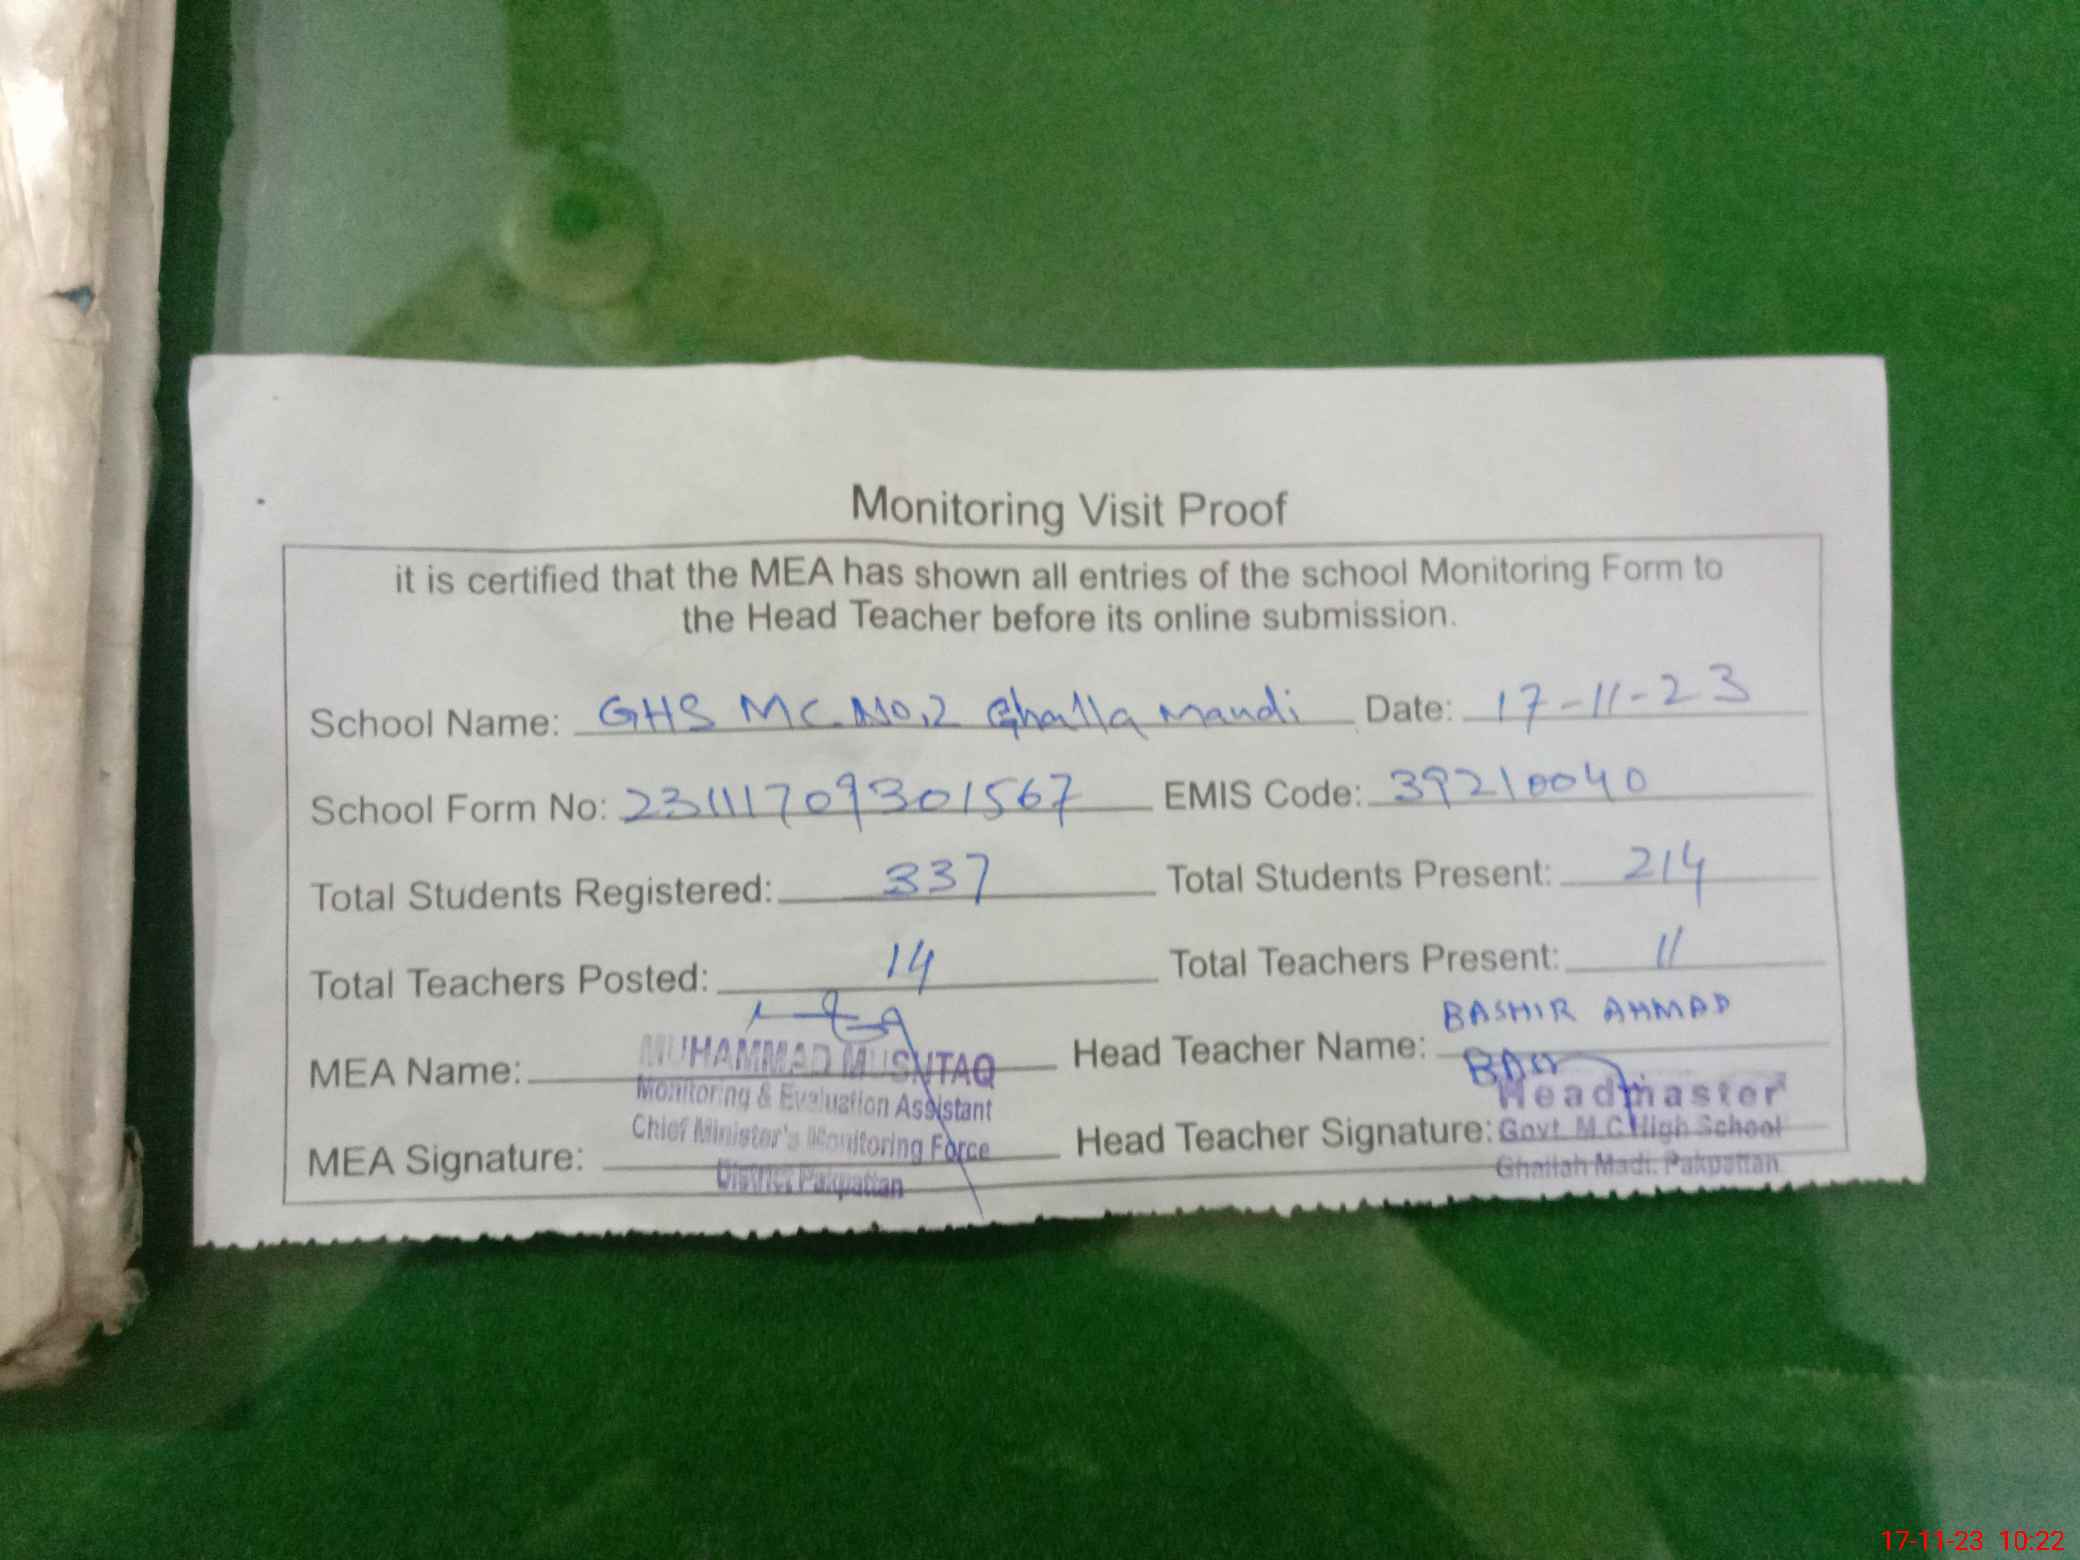 Monitoring Visit Proof
it is certified that the MEA has shown all entries of the school Monitoring Form to
the Head Teacher before its online submission.
School Name: GHS MC. No.2 Ghalla Mandi Date: 17-11-23
School Form No: 23111709301567 EMIS Code: 39210040
Total Students Registered: 337 Total Students Present: 214
Total Teachers Posted: 14 Total Teachers Present: 11
MEA Name: MUHAMMAD MUSHTAQ Head Teacher Name: BASHIR AHMAD
Monitoring & Evaluation Assistant Headmaster
Chief Minister's Monitoring Force Govt. M.C High School
MEA Signature: Head Teacher Signature:
District Pakpattan Ghallah Madi. Pakpattan
17-11-23 10:22